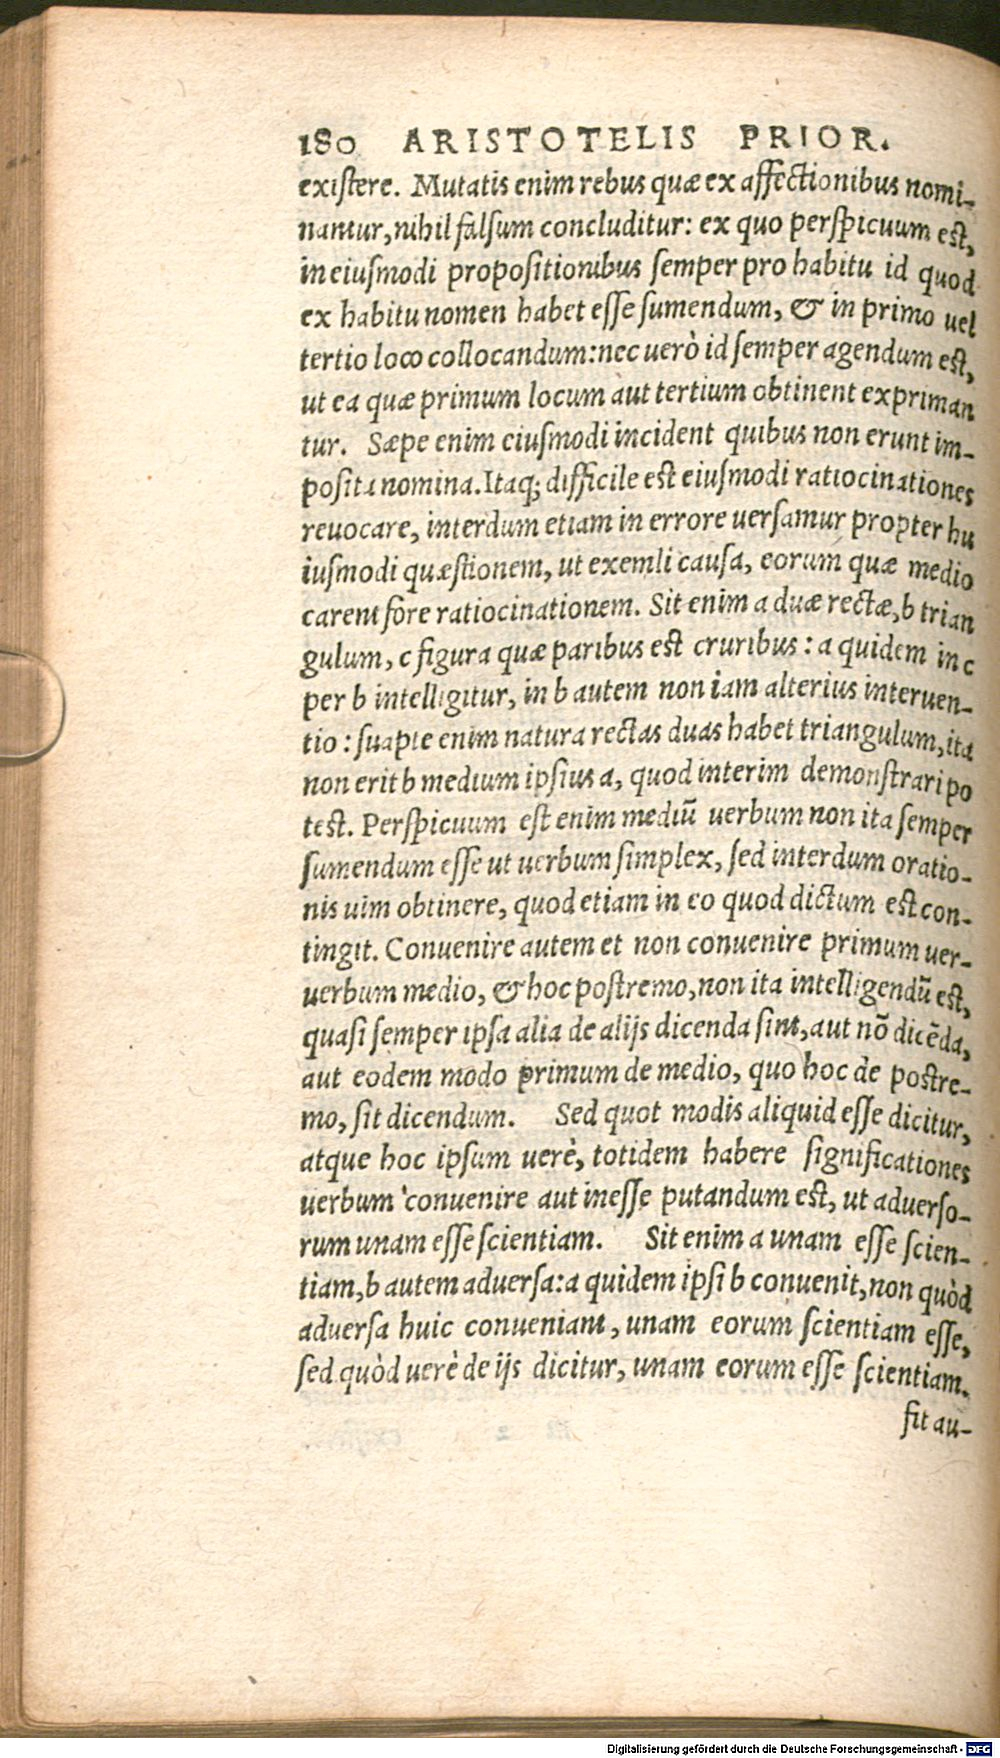 180 ARISTOTELIS PRIOR.
existere. Mutatis enim rebus quæ ex affectionibus nomi-
nantur, nihil falsum concluditur: ex quo perspicuum est,
in eiusmodi propositionibus semper pro habitu id quod
ex habitu nomen habet esse sumendum, & in primo uel
tertio loco collocandum: nec uerò id semper agendum est,
ut ea quæ primum locum aut tertium obtinent expriman
tur. Sæpe enim eiusmodi incident quibus non erunt im-
posita nomina. Itaq; difficile est eiusmodi ratiocinationes
reuocare, interdum etiam in errore uersamur propter hu
iusmodi quæstionem, ut exemli causa, eorum quæ medio
carent fore ratiocinationem. Sit enim a duæ rectæ, b trian
gulum, c figura quæ paribus est cruribus: a quidem in c
per b intelligitur, in b autem non iam alterius interuen-
tio: suapte enim natura rectas duas habet triangulum, ita
non erit b medium ipsius a, quod interim demonstrari po
test. Perspicuum est enim mediū uerbum non ita semper
sumendum esse ut uerbum simplex, sed interdum oratio-
nis uim obtinere, quod etiam in eo quod dictum est con-
tingit. Conuenire autem et non conuenire primum uer-
uerbum medio, & hoc postremo, non ita intelligendū est,
quasi semper ipsa alia de alijs dicenda sint, aut nō dicēda,
aut eodem modo primum de medio, quo hoc de postre-
mo, sit dicendum. Sed quot modis aliquid esse dicitur,
atque hoc ipsum uerè, totidem habere significationes
uerbum conuenire aut inesse putandum est, ut aduerso-
rum unam esse scientiam. Sit enim a unam esse scien-
tiam, b autem aduersa: a quidem ipsi b conuenit, non quòd
aduersa huic conueniant, unam eorum scientiam esse,
sed quòd uerè de ijs dicitur, unam eorum esse scientiam.
fit au-
Digitalisierung gefördert durch die Deutsche Forschungsgemeinschaft - DFG